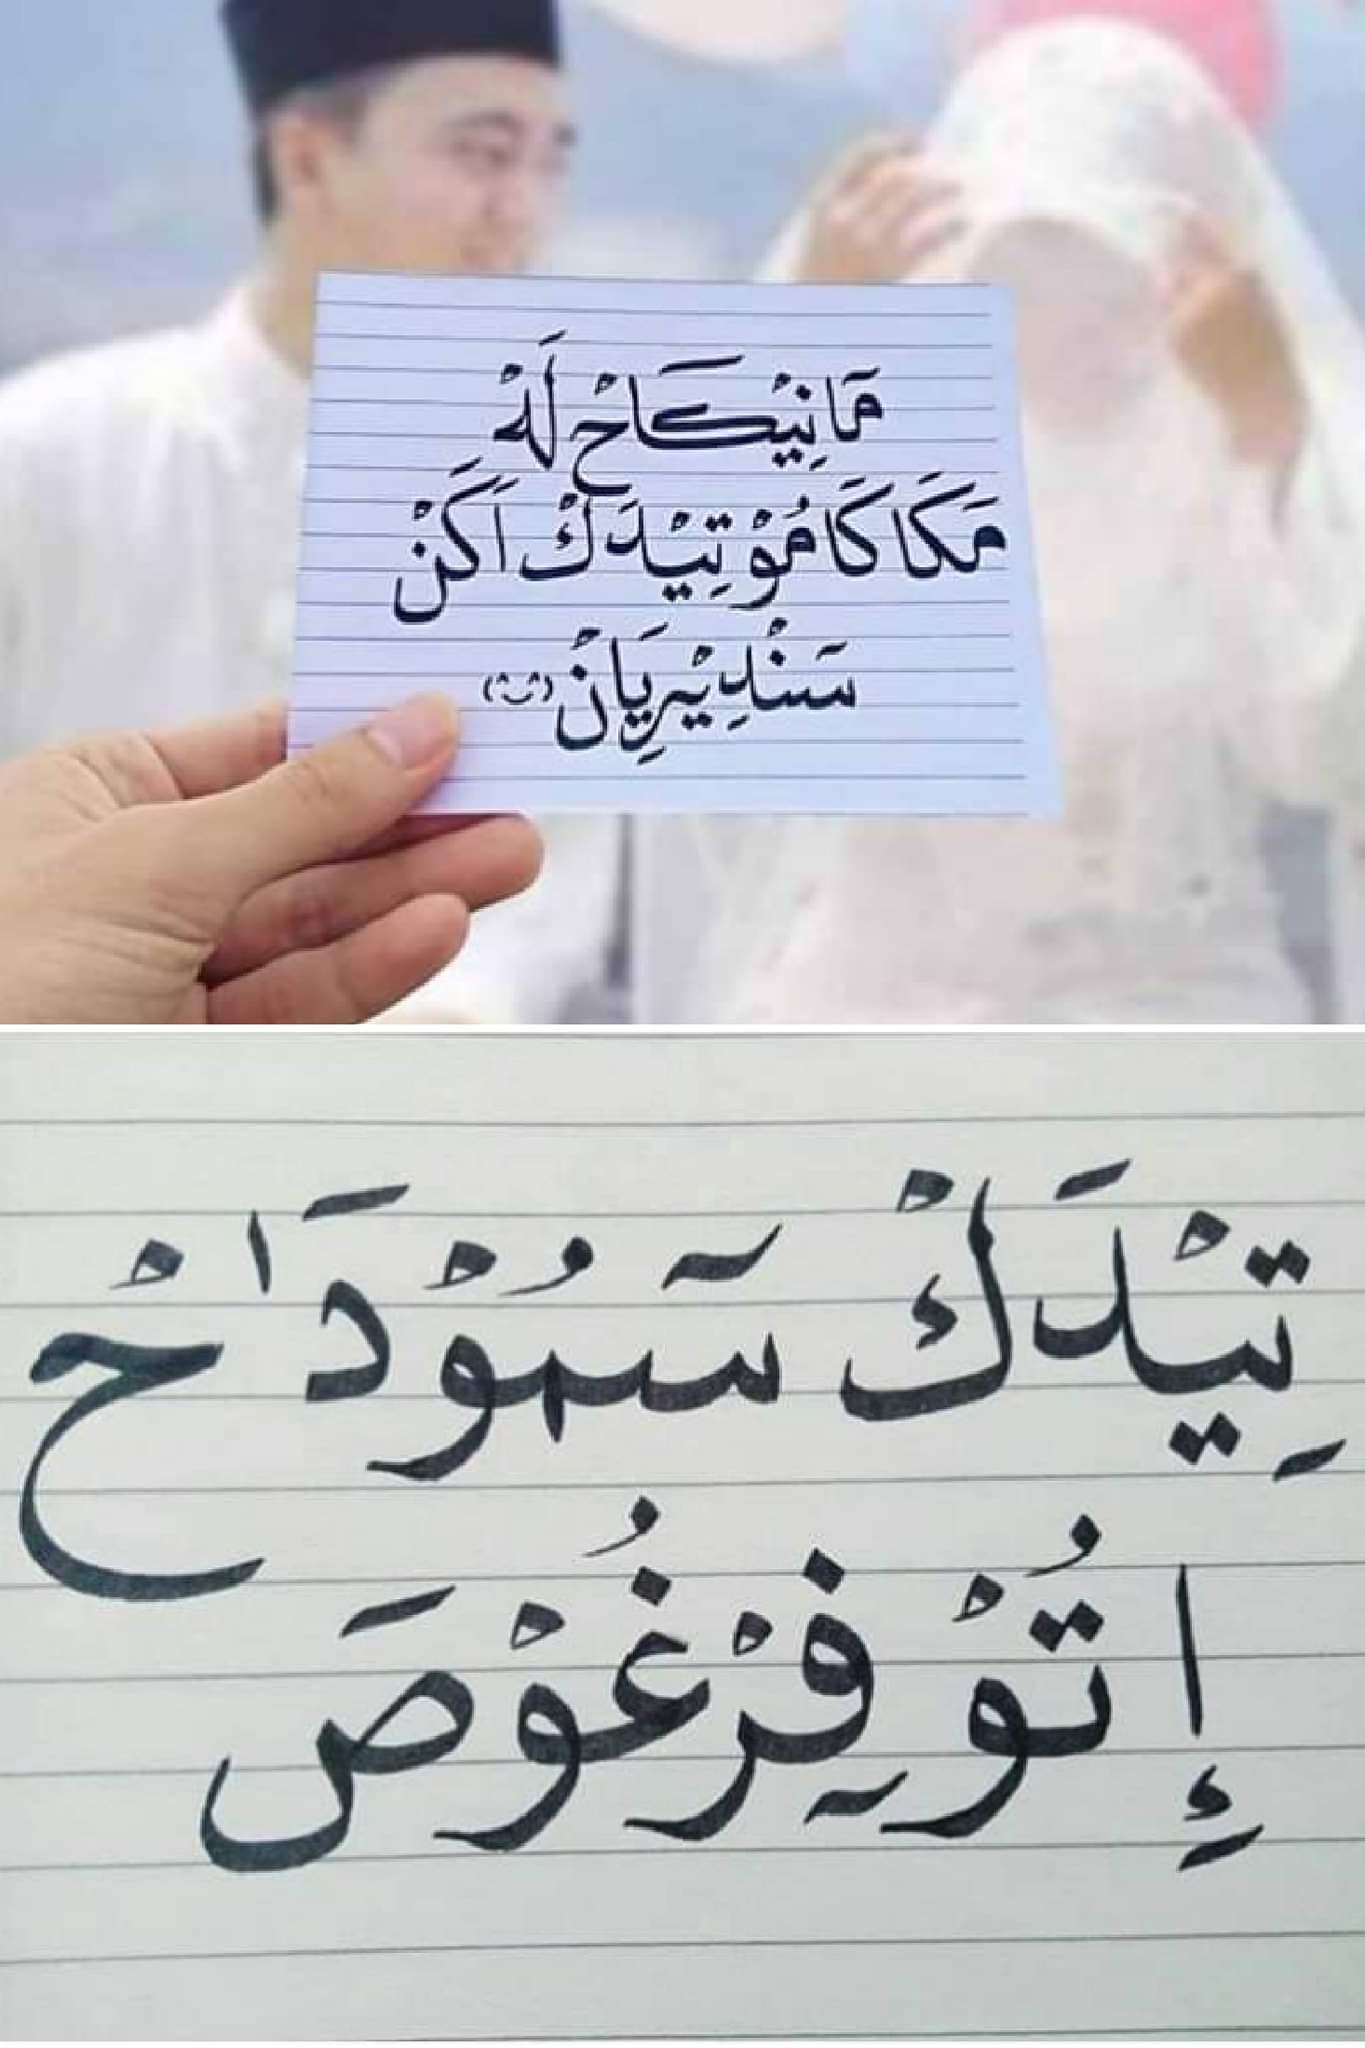 مَانِيْكَاحْ لَهْ
مَكَا كَامُوْ تِيْدَكْ اَكَنْ
سَنْدِيْرِيَانْ (^‿^)
تِيْدَكْ سَمُوْدَاحْ
إِتُوْ فِرْغُوْصَ